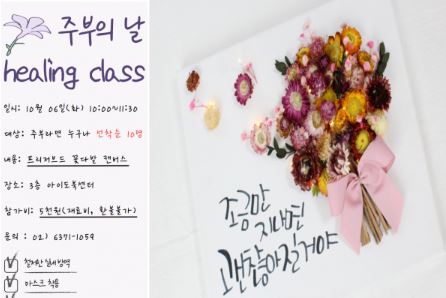 주부의 날
healing class
일시: 10월 06일(화) 10:00~11:30
대상: 주부라면 누구나 선착순 10명
내용: 프리저브드 꽃다발 캔버스
장소: 3층 아이도복센터
참가비: 5천원(재료비, 환불불가)
문의: 02) 6371-1059
철저한 실내방역
마스크 착용
조금만
지나면
괜찮아질거야